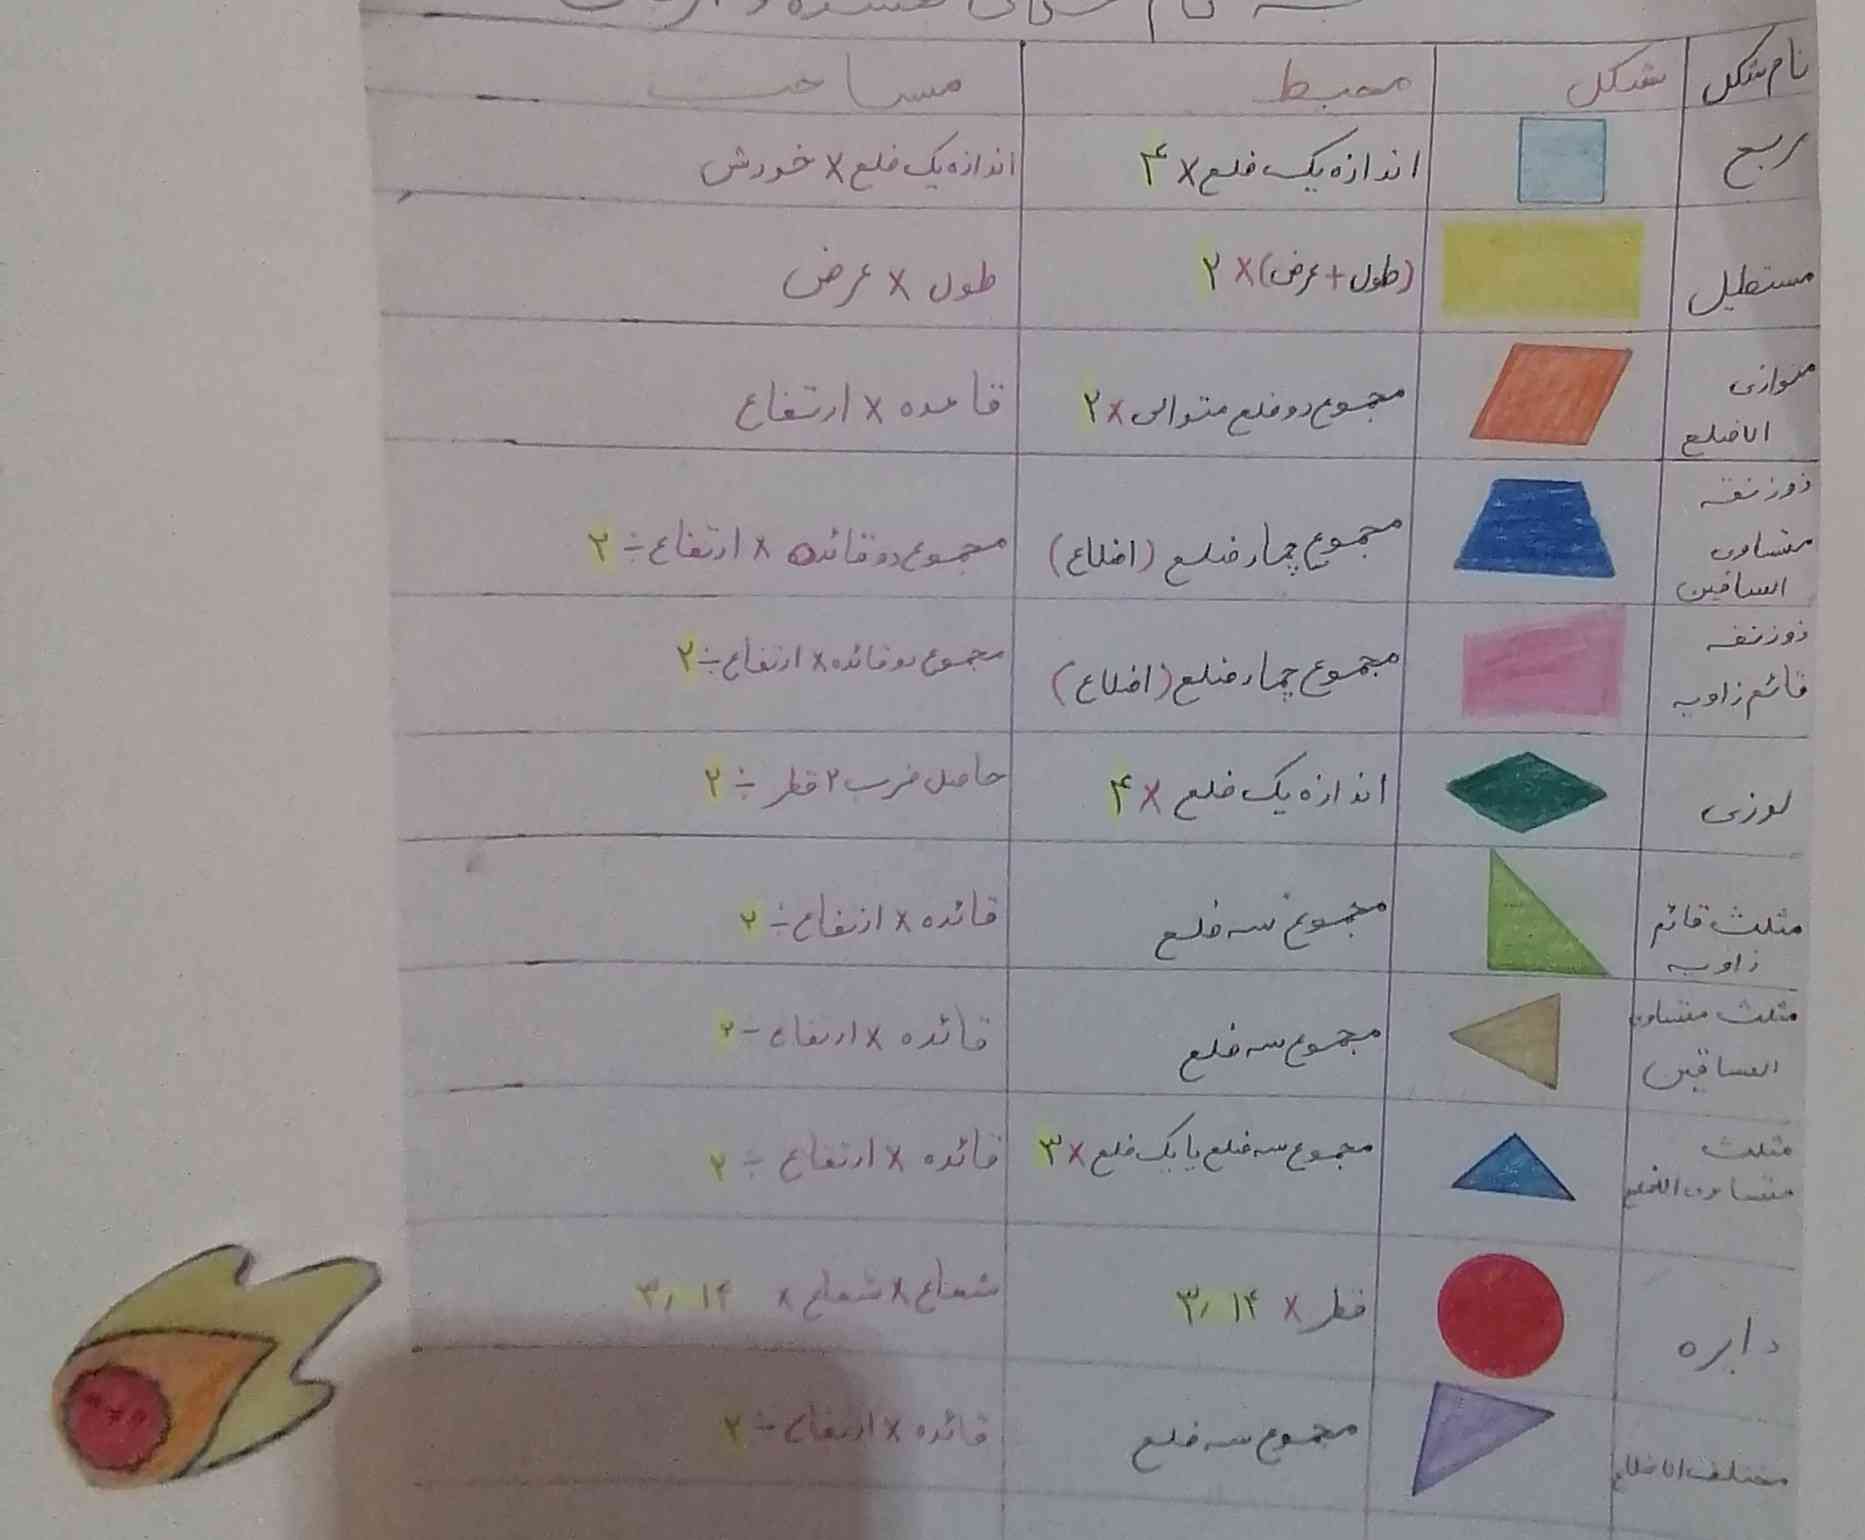 نام شکل شکل محیط مساحت
ربع اندازه یک ضلع × ۴ اندازه یک ضلع × خودش
مستطیل (طول + عرض) × ۲ طول × عرض
موازی مجموع دو ضلع متوالی × ۲ قاعده × ارتفاع
الاضلع
ذوزنقه
متساوی مجموع چهار ضلع (اضلاع) مجموع دو قائده × ارتفاع ÷ ۲
الساقین
ذوزنقه مجموع چهار ضلع (اضلاع) مجموع دو قائده × ارتفاع ÷ ۲
قائم زاویه
لوزی اندازه یک ضلع × ۴ حاصل ضرب ۲ قطر ÷ ۲
مثلث قائم مجموع سه ضلع قائده × ارتفاع ÷ ۲
زاویه
مثلث متساوی مجموع سه ضلع قائده × ارتفاع ÷ ۲
الساقین
مثلث مجموع سه ضلع یا یک ضلع × ۳ قائده × ارتفاع ÷ ۲
متساوی الضلع
دایره قطر × ۳٫۱۴ شعاع × شعاع × ۳٫۱۴
مختلف الاضلاع مجموع سه ضلع قائده × ارتفاع ÷ ۲